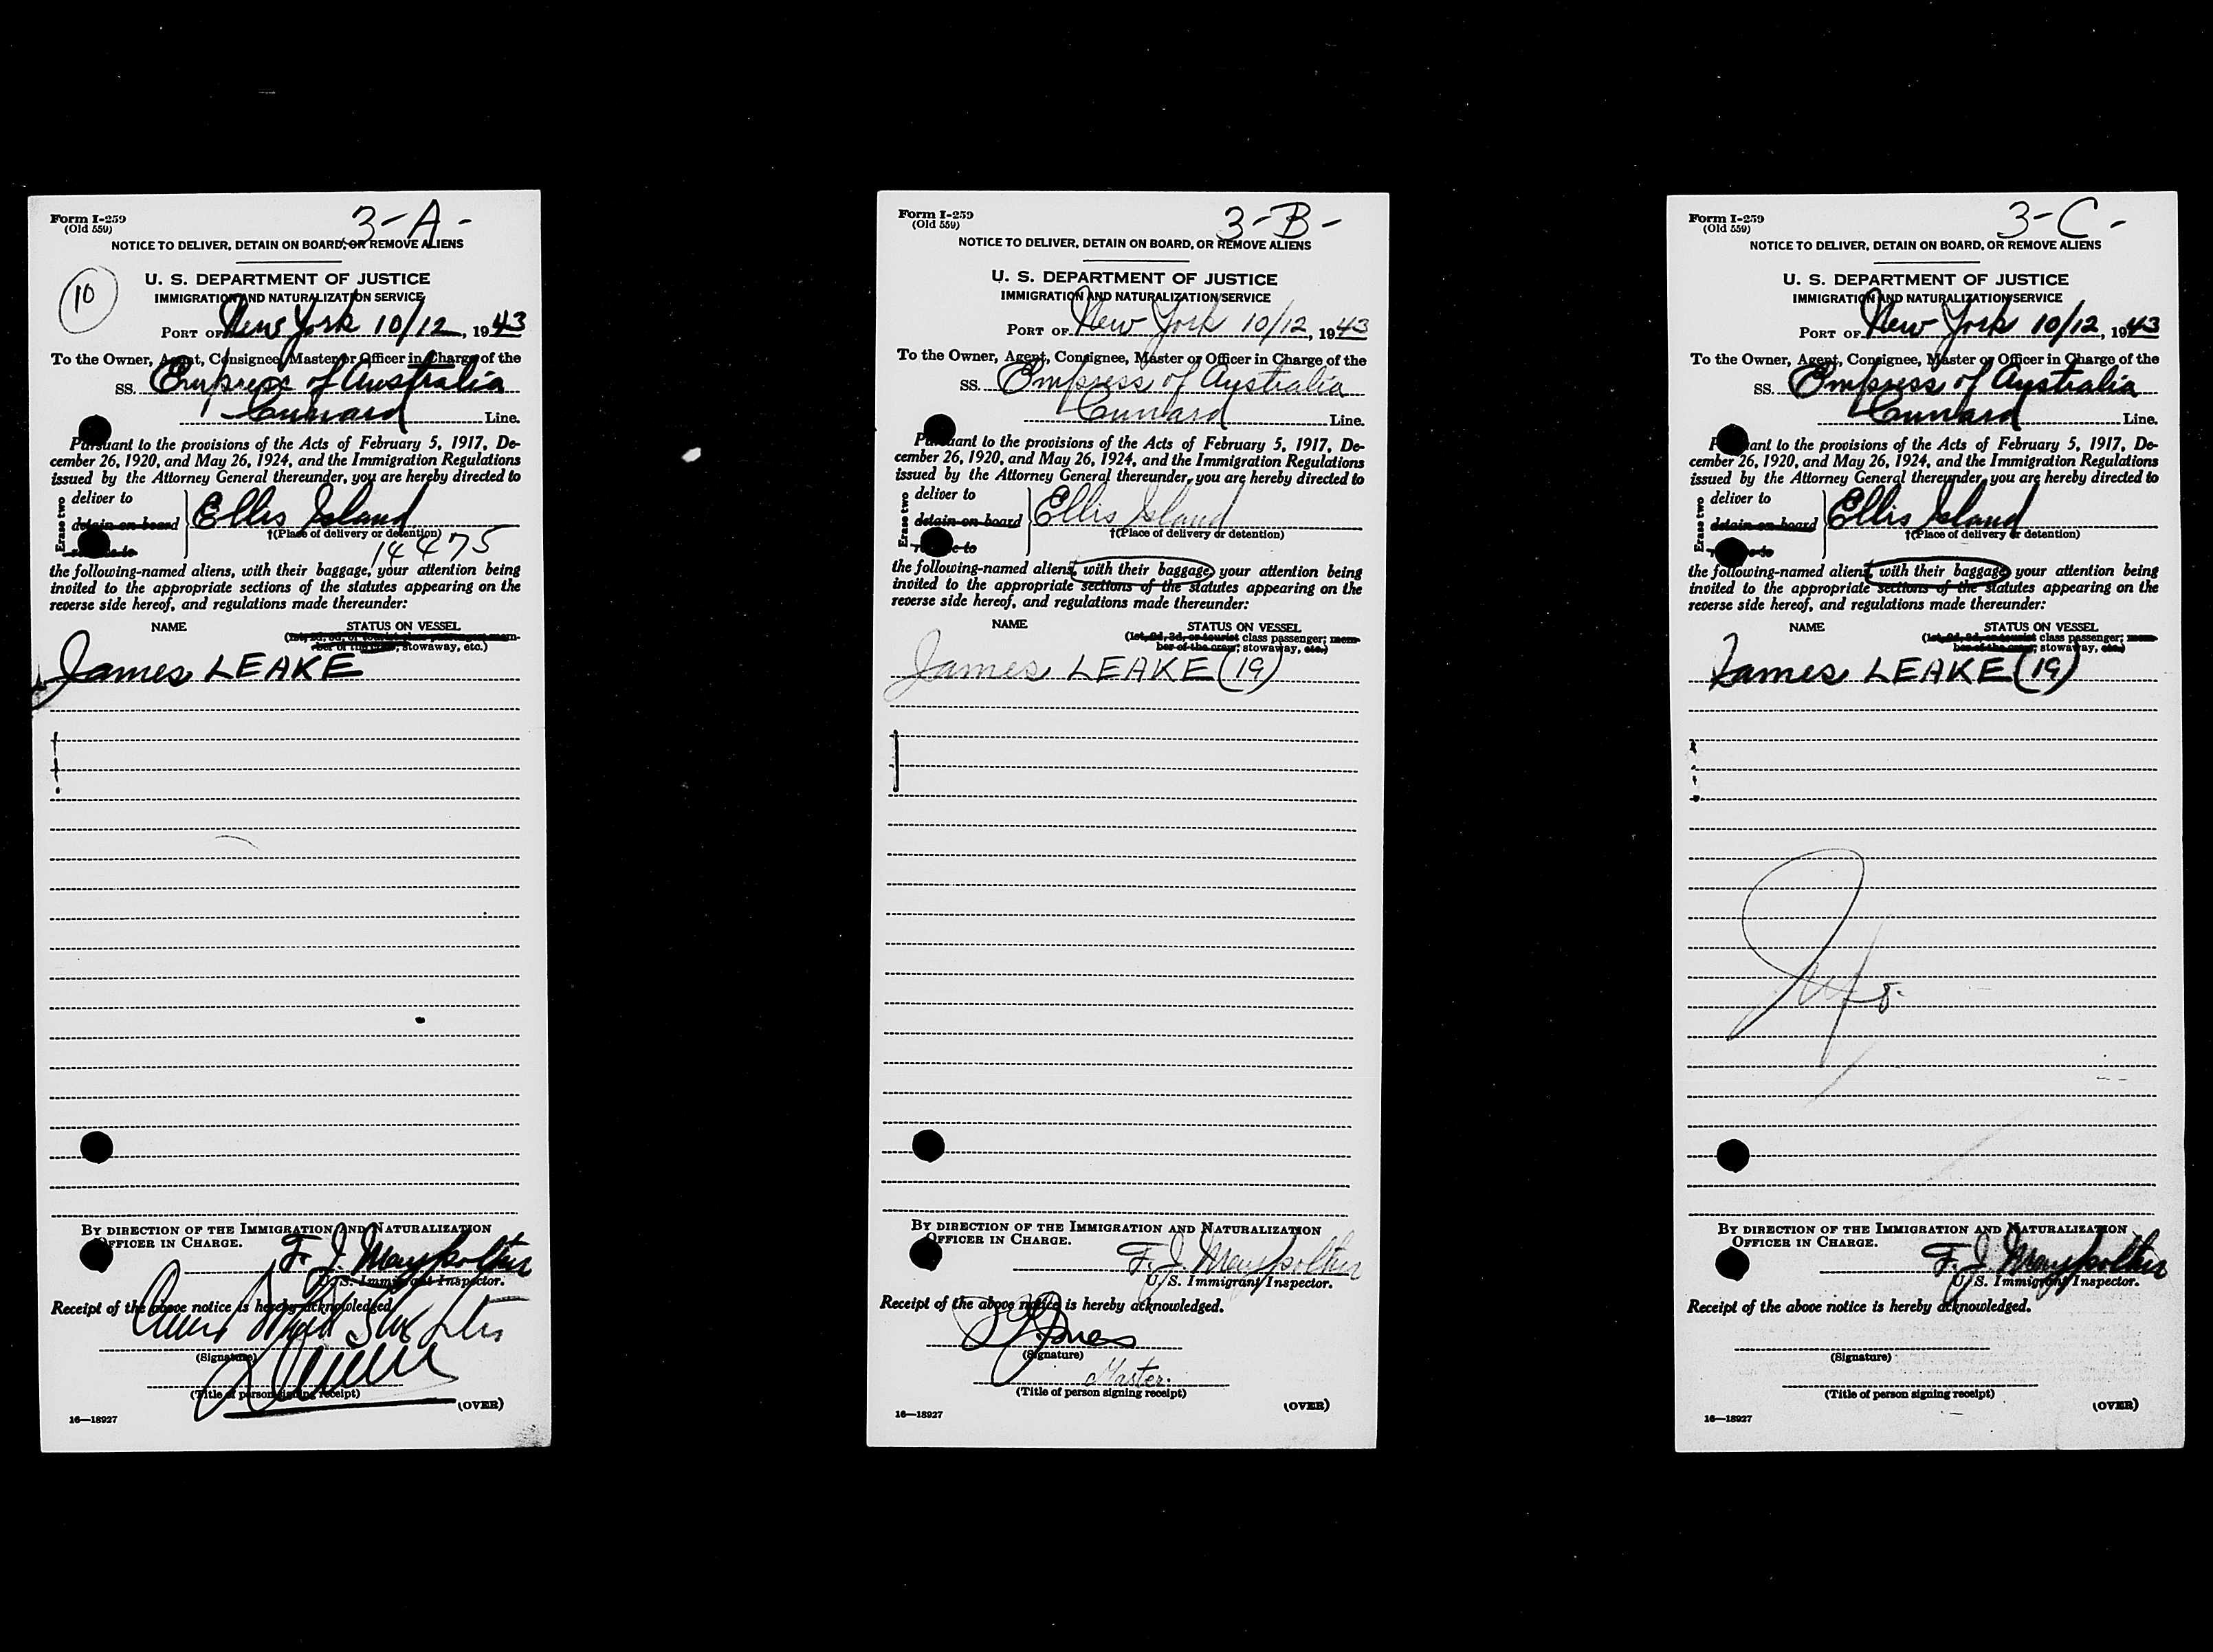 Form I-259
(Old 559)
3-A-
NOTICE TO DELIVER, DETAIN ON BOARD, OR REMOVE ALIENS
10
U. S. DEPARTMENT OF JUSTICE
IMMIGRATION AND NATURALIZATION SERVICE
PORT OF New York 10/12, 1943
To the Owner, Agent, Consignee, Master or Officer in Charge of the
SS. Empress of Australia
Cunnard Line.
Pursuant to the provisions of the Acts of February 5, 1917, De-
cember 26, 1920, and May 26, 1924, and the Immigration Regulations
issued by the Attorney General thereunder, you are hereby directed to
Erase two
deliver to
detain on board
Ellis Island
†(Place of delivery or detention)
14475
the following-named aliens, with their baggage, your attention being
invited to the appropriate sections of the statutes appearing on the
reverse side hereof, and regulations made thereunder:
NAME STATUS ON VESSEL
(1st, 2d, 3d, or tourist class passenger; mem-
ber of the crew; stowaway, etc.)
James LEAKE
BY DIRECTION OF THE IMMIGRATION AND NATURALIZATION
OFFICER IN CHARGE.
F. J.
U. S. Immigrant Inspector.
Receipt of the above notice is hereby acknowledged.
(Signature)
(Title of person signing receipt)
(OVER)
16—18927
Form I-259
(Old 559)
3-B-
NOTICE TO DELIVER, DETAIN ON BOARD, OR REMOVE ALIENS
U. S. DEPARTMENT OF JUSTICE
IMMIGRATION AND NATURALIZATION SERVICE
PORT OF New York 10/12, 1943
To the Owner, Agent, Consignee, Master or Officer in Charge of the
SS. Empress of Australia
Cunnard Line.
Pursuant to the provisions of the Acts of February 5, 1917, De-
cember 26, 1920, and May 26, 1924, and the Immigration Regulations
issued by the Attorney General thereunder, you are hereby directed to
Erase two
deliver to
detain on board
Ellis Island
†(Place of delivery or detention)
the following-named aliens, with their baggage, your attention being
invited to the appropriate sections of the statutes appearing on the
reverse side hereof, and regulations made thereunder:
NAME STATUS ON VESSEL
(1st, 2d, 3d, or tourist class passenger; mem-
ber of the crew; stowaway, etc.)
James LEAKE (19)
BY DIRECTION OF THE IMMIGRATION AND NATURALIZATION
OFFICER IN CHARGE.
F. J.
U. S. Immigrant Inspector.
Receipt of the above notice is hereby acknowledged.
Jones
(Signature)
Master.
(Title of person signing receipt)
(OVER)
16—18927
Form I-259
(Old 559)
3-C-
NOTICE TO DELIVER, DETAIN ON BOARD, OR REMOVE ALIENS
U. S. DEPARTMENT OF JUSTICE
IMMIGRATION AND NATURALIZATION SERVICE
PORT OF New York 10/12, 1943
To the Owner, Agent, Consignee, Master or Officer in Charge of the
SS. Empress of Australia
Cunnard Line.
Pursuant to the provisions of the Acts of February 5, 1917, De-
cember 26, 1920, and May 26, 1924, and the Immigration Regulations
issued by the Attorney General thereunder, you are hereby directed to
Erase two
deliver to
detain on board
Ellis Island
†(Place of delivery or detention)
the following-named aliens, with their baggage, your attention being
invited to the appropriate sections of the statutes appearing on the
reverse side hereof, and regulations made thereunder:
NAME STATUS ON VESSEL
(1st, 2d, 3d, or tourist class passenger; mem-
ber of the crew; stowaway, etc.)
James LEAKE (19)
BY DIRECTION OF THE IMMIGRATION AND NATURALIZATION
OFFICER IN CHARGE.
F. J.
U. S. Immigrant Inspector.
Receipt of the above notice is hereby acknowledged.
(Signature)
(Title of person signing receipt)
(OVER)
16—18927